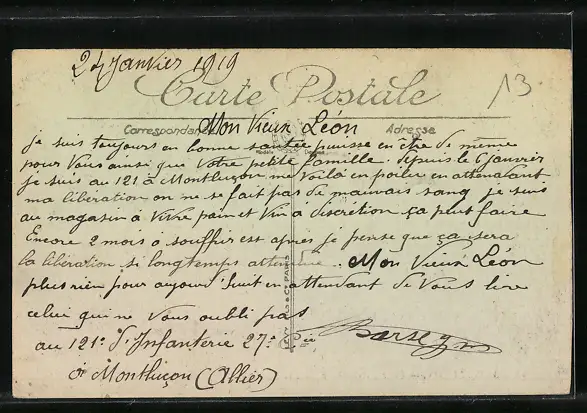 24 Janvier 1919
13
Carte Postale
Correspondance
Adresse
Mon Vieux Léon
je suis toujours en bonne santée puisse en être de même
pour vous ainsi que votre petite famille. depuis le 6 Janvier
je suis au 121 à Montluçon me voilà en poilu en attendant
ma libération on ne se fait pas de mauvais sang je suis
au magasin à vivre pain et vin a discrétion ça peut faire
Encore 2 mois à souffrir est après je pense que ça sera
la libération si longtemps attendue. Mon Vieux Léon
plus rien pour aujourd'huit en attendant de vous lire
celui qui ne vous oubli pas
au 121e d'Infanterie 27e Cie
à Montluçon (Allier)